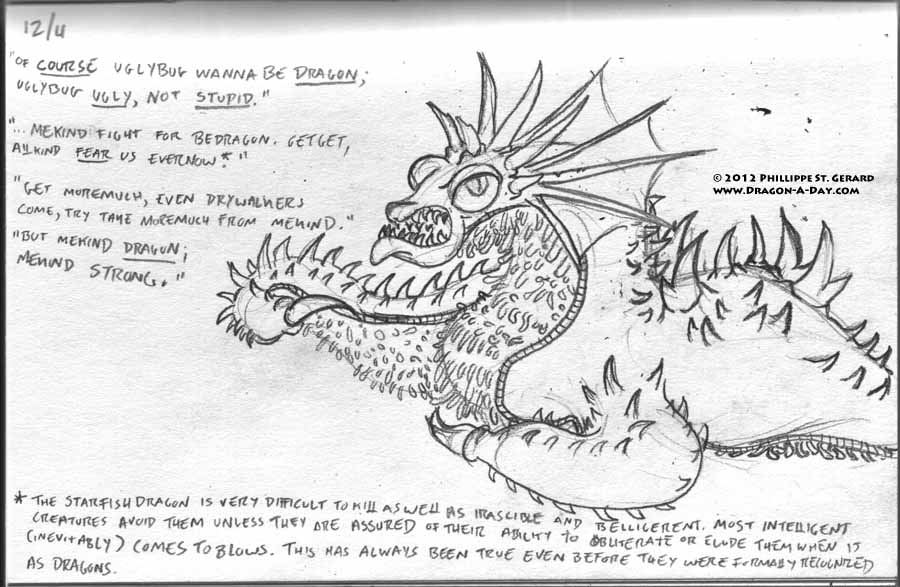 12/4
"OF COURSE UGLYBUG WANNA BE DRAGON;
UGLYBUG UGLY, NOT STUPID."
"...MEKIND FIGHT FOR BEDRAGON. GETGET,
ALLKIND FEAR US EVERNOW*."
"GET MOREMUCH, EVEN DRYWALKERS
COME, TRY TAKE MOREMUCH FROM MEKIND."
"BUT MEKIND DRAGON;
MEKIND STRONG."
© 2012 PHILLIPPE ST. GERARD
WWW.DRAGON-A-DAY.COM
* THE STARFISH DRAGON IS VERY DIFFICULT TO KILL AS WELL AS IRASCIBLE AND BELLIGERENT. MOST INTELLIGENT
CREATURES AVOID THEM UNLESS THEY ARE ASSURED OF THEIR ABILITY TO OBLITERATE OR ELUDE THEM WHEN IT
(INEVITABLY) COMES TO BLOWS. THIS HAS ALWAYS BEEN TRUE EVEN BEFORE THEY WERE FORMALLY RECOGNIZED
AS DRAGONS.